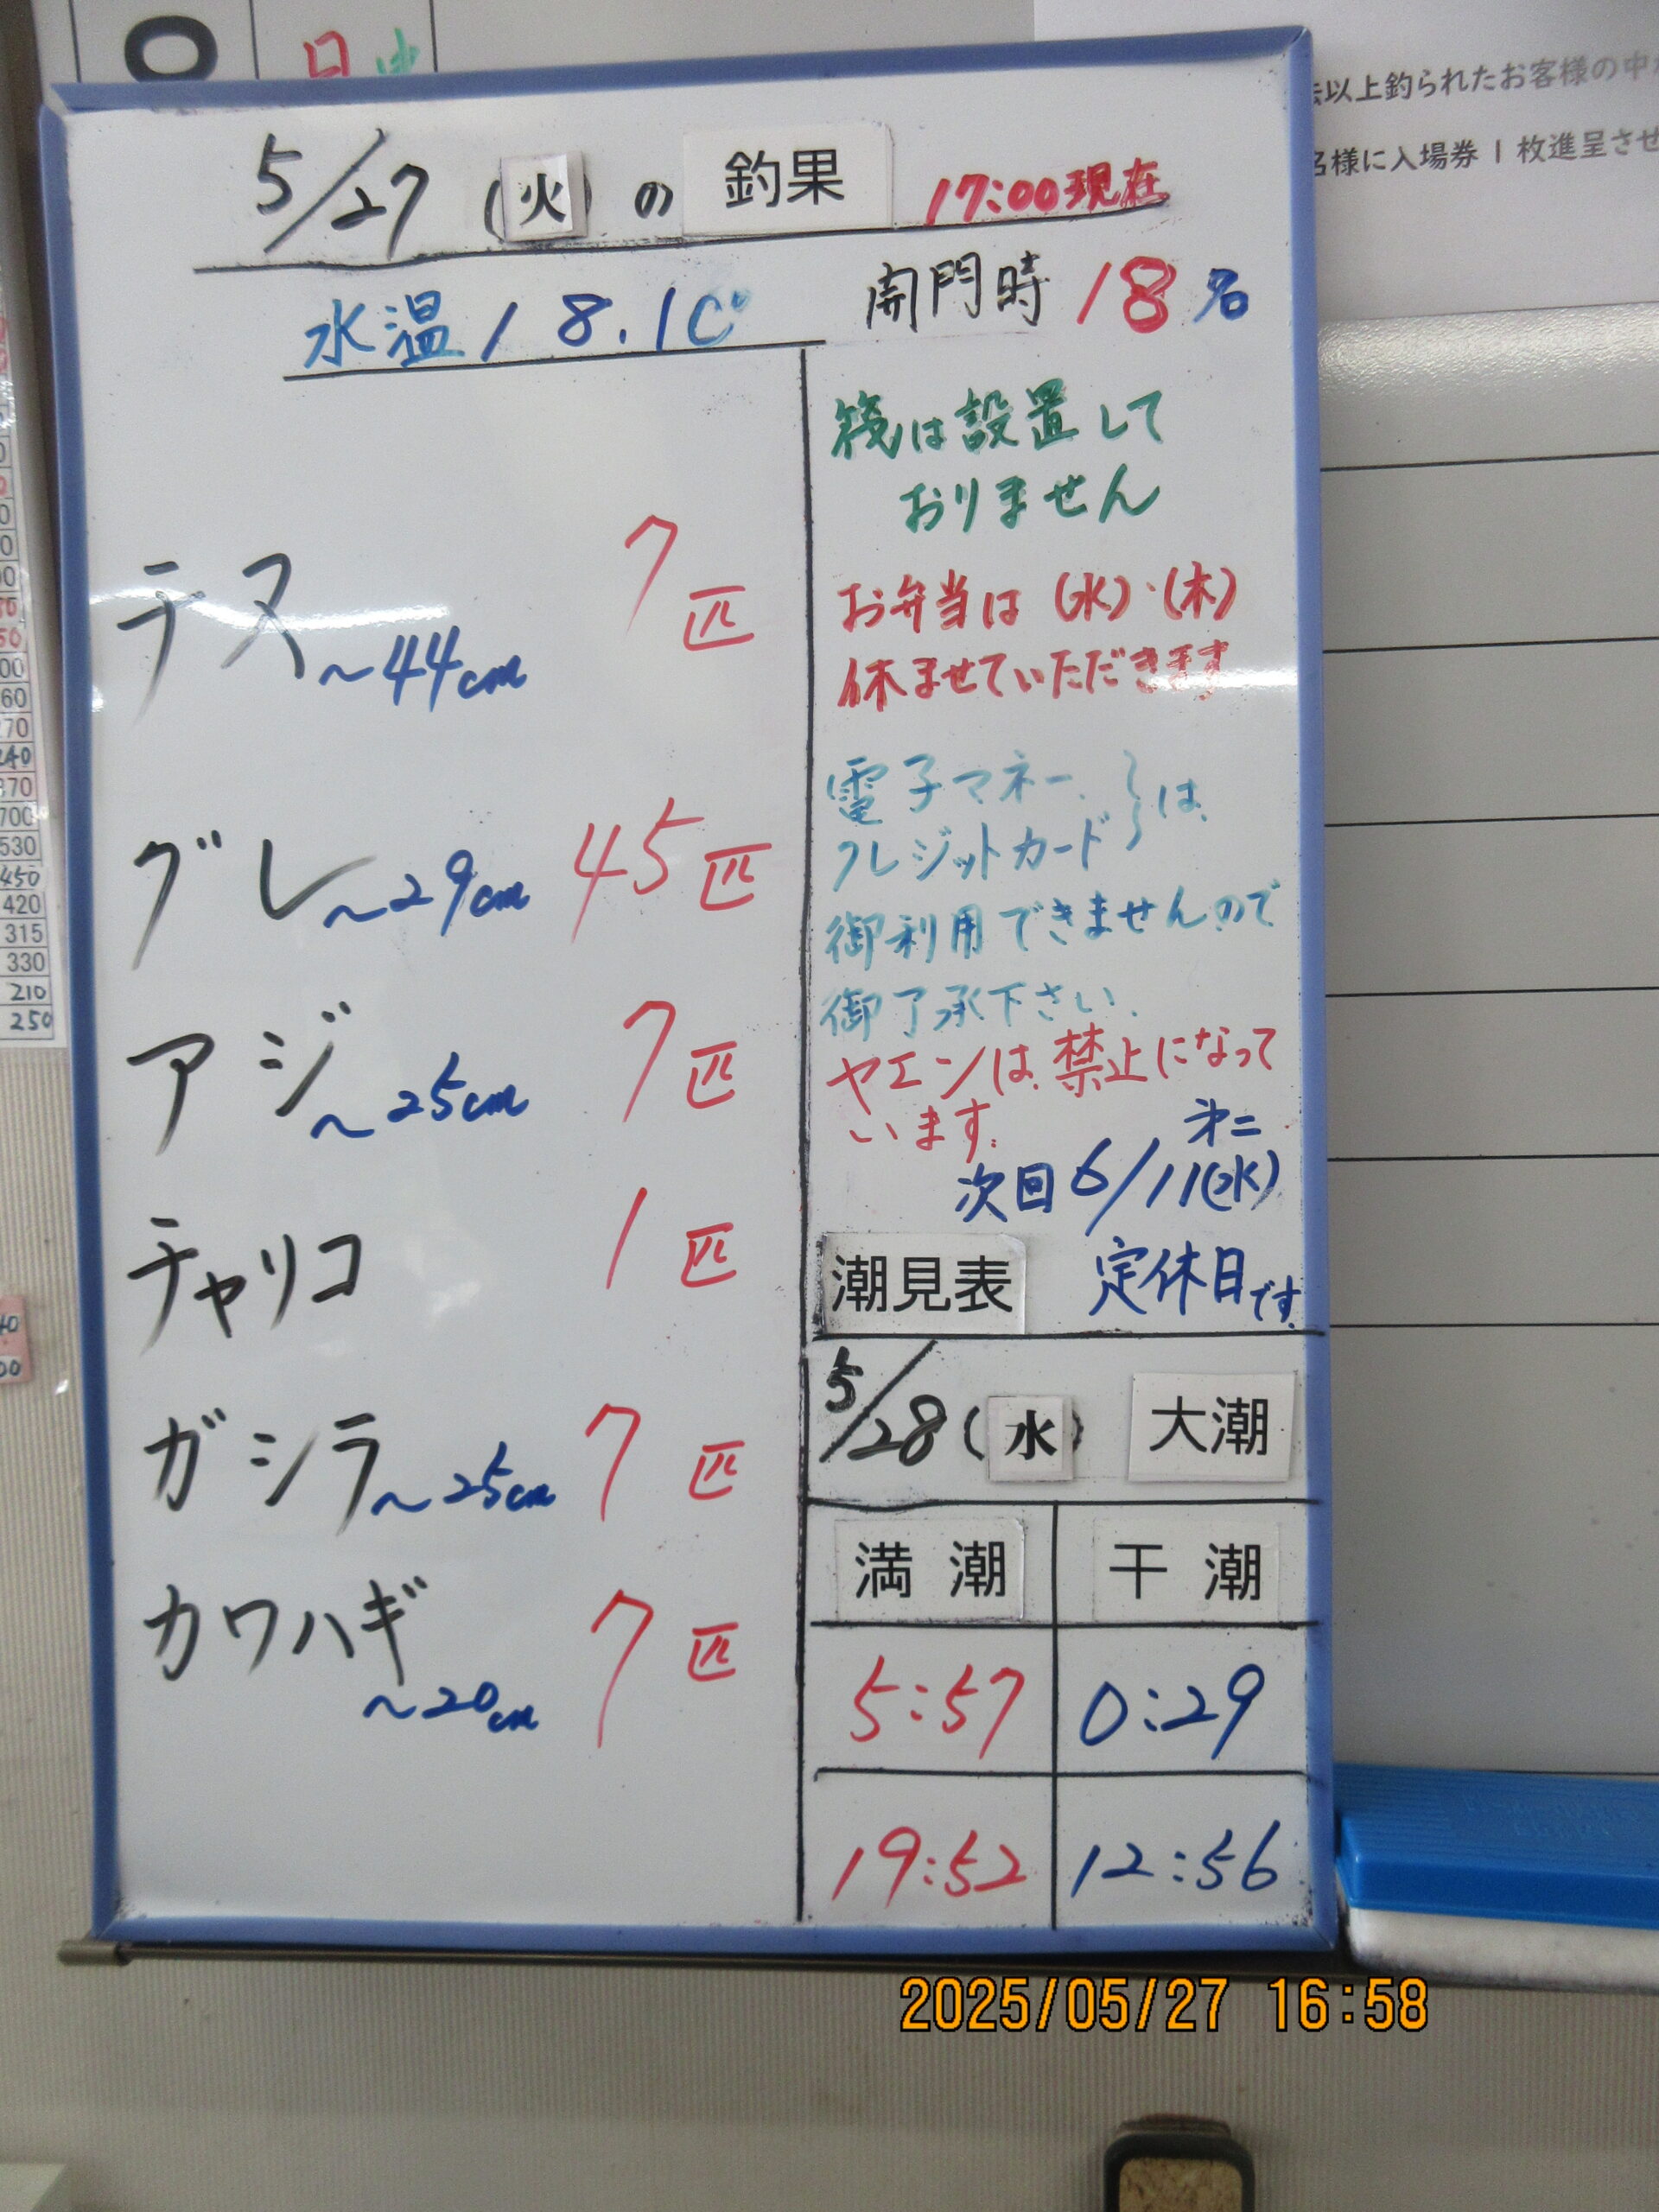 日中
去以上釣られたお客様の中
名様に入場券1枚進呈させ
5/27 (火) の 釣果 17:00現在
水温 18.1C°
開門時 18名
チヌ ~44cm 7匹
グレ ~29cm 45匹
アジ ~25cm 7匹
チャリコ 1匹
ガシラ ~25cm 7匹
カワハギ ~20cm 7匹
筏は設置して
おりません
お弁当は(水)・(木)
休ませていただきます
電子マネー、
クレジットカード は、
御利用できませんので
御了承下さい、
ヤエンは、禁止になって
います。
次回 6/11(水) 第二
定休日です。
潮見表
5/28 (水) 大潮
満潮 干潮
5:57 0:29
19:52 12:56
530
450
420
315
330
210
250
2025/05/27 16:58